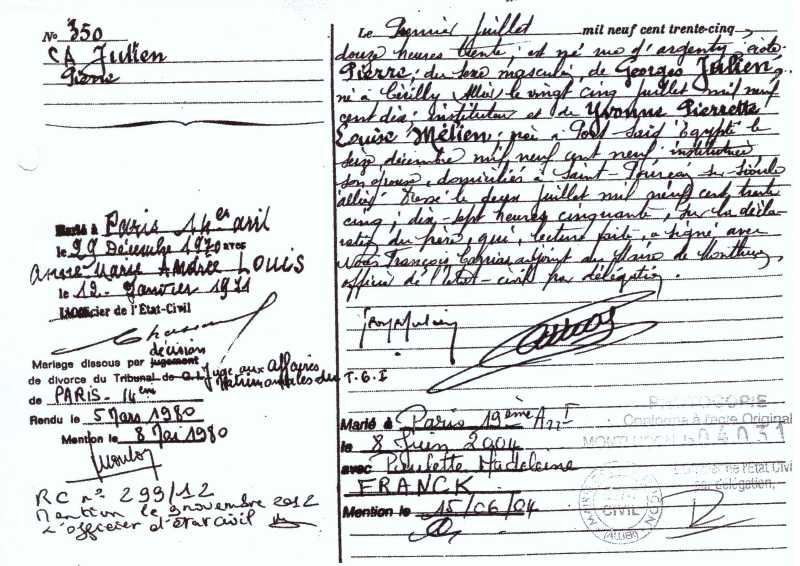 No 350
CA Julien
Pierre
Marié à Paris 14e arr
le 29 Décembre 1970 avec
Anne-Marie Andrée LOUIS
le 12 Janvier 1971
L'Officier de l'Etat-Civil
Mariage dissous par jugement décision
de divorce du Tribunal de G.I. Juge aux Affaires
Matrimoniales du T.G.I
de PARIS - 14em
Rendu le 5 Mars 1980
Mention le 8 Mai 1980
RC n° 299/12
Mention le 9 novembre 2012
L'officier d'état civil
Le Premier juillet mil neuf cent trente-cinq
douze heures trente, est né rue d'argenty
Pierre, du sexe masculin, de Georges Julien,
né à Cérilly Allier le vingt cinq juillet mil neuf
cent dix, instituteur et de Yvonne Pierrette
Louise Mélien, née à Port-Saïd Egypte le
seize décembre mil neuf cent neuf, institutrice
son épouse, domiciliés à Saint-Pourçain-sur-Sioule
allier. Dressé le deux juillet mil neuf cent trente
cinq, dix-sept heures cinquante, sur la décla-
ration du père, qui, lecture faite, a signé avec
Nous François adjoint au Maire de Montluçon,
officier de l'état-civil par délégation.
Marié à Paris 19ème Arrt
le 8 Juin 2004
avec Paulette Madeleine
FRANCK
Mention le 15/06/04
PHOTOCOPIE
Conforme à l'acte Original
MONTLUCON
L'Officier de l'Etat Civil
par délégation,
CIVIL
(ALLIER)